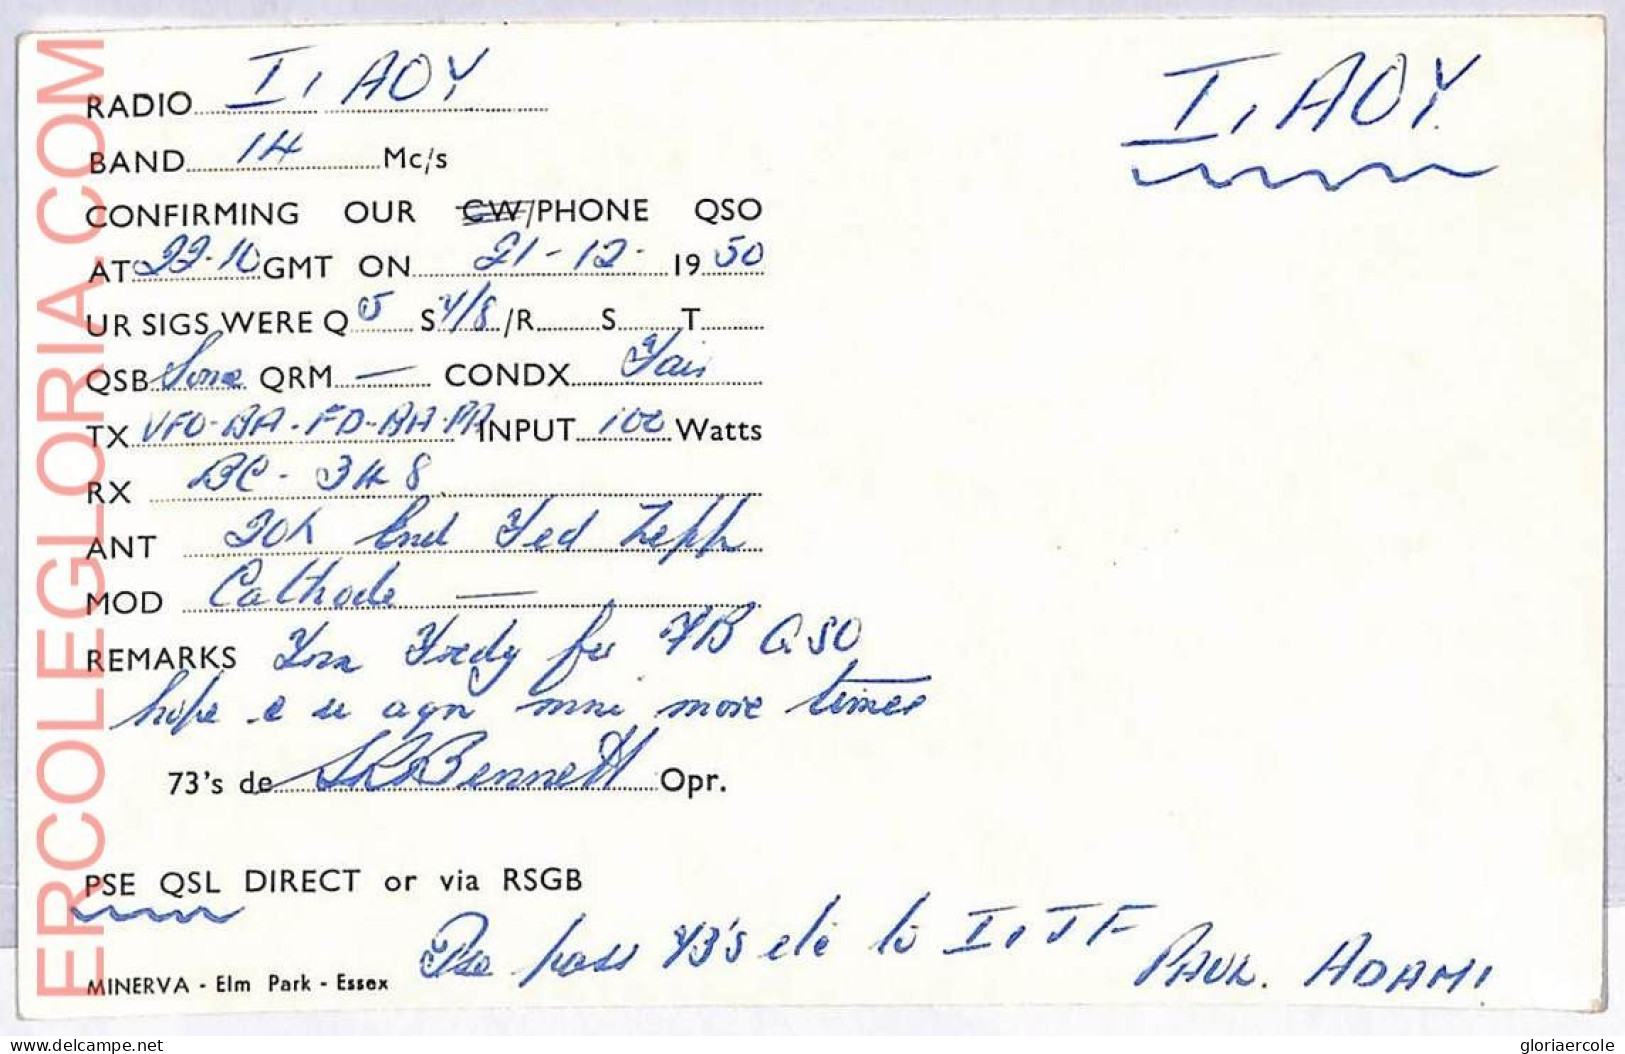 RADIO I1AOY
I1AOY
BAND 14 Mc/s
CONFIRMING OUR CW/PHONE QSO
AT 22.10 GMT ON 21-12- 1950
UR SIGS WERE Q 5 S 7/8 /R S T
QSB Some QRM — CONDX Fair
TX VFO-BA-FD-BA-PA INPUT 100 Watts
RX BC-348
ANT 20m End Fed Zepp
MOD Cathode —
REMARKS Tnx Fredy fer FB QSO
hope c u agn mni more times
73's de Bennett Opr.
PSE QSL DIRECT or via RSGB
Pse pass 73's etc to I1JF PAUL. ADAMI
MINERVA - Elm Park - Essex
ERCOLEGLORIA.COM
delcampe.net
gloriaercole